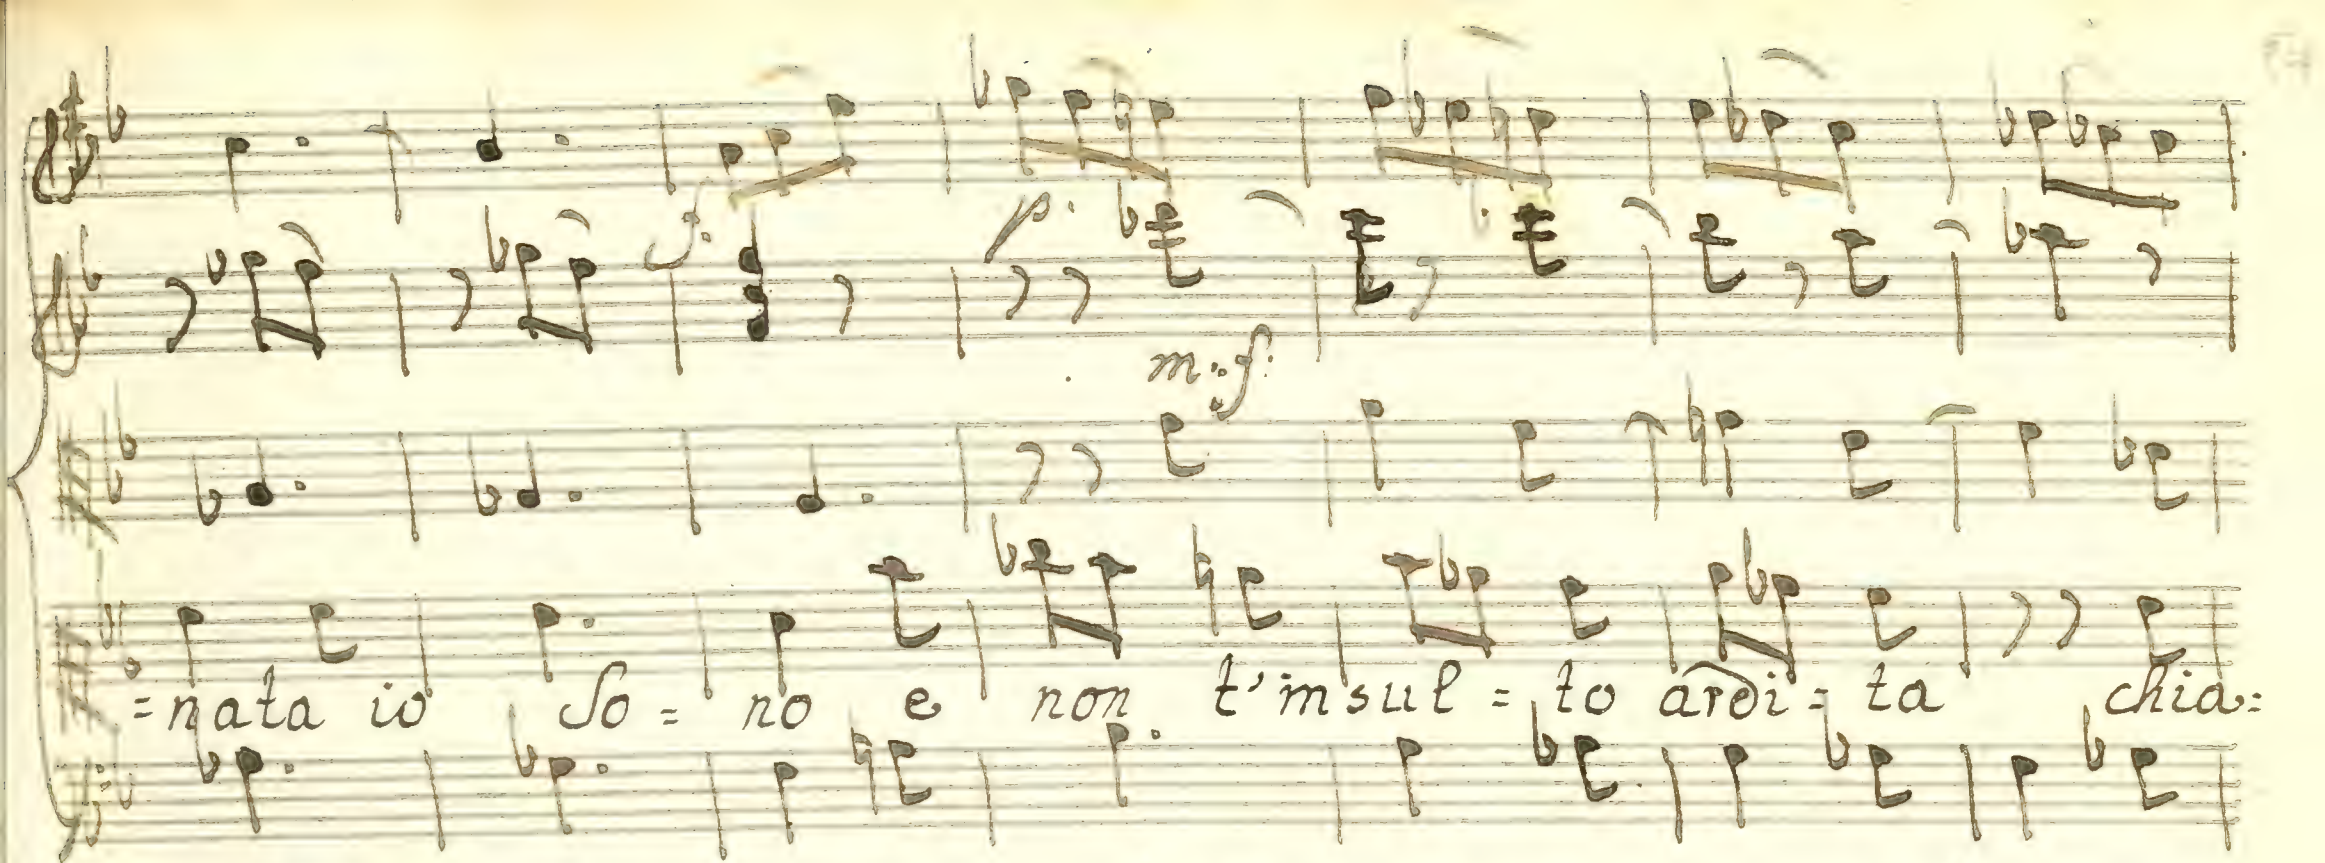 f.
p.
m:f.
=nata io So= no e non t'insul= to ardi= ta chia=